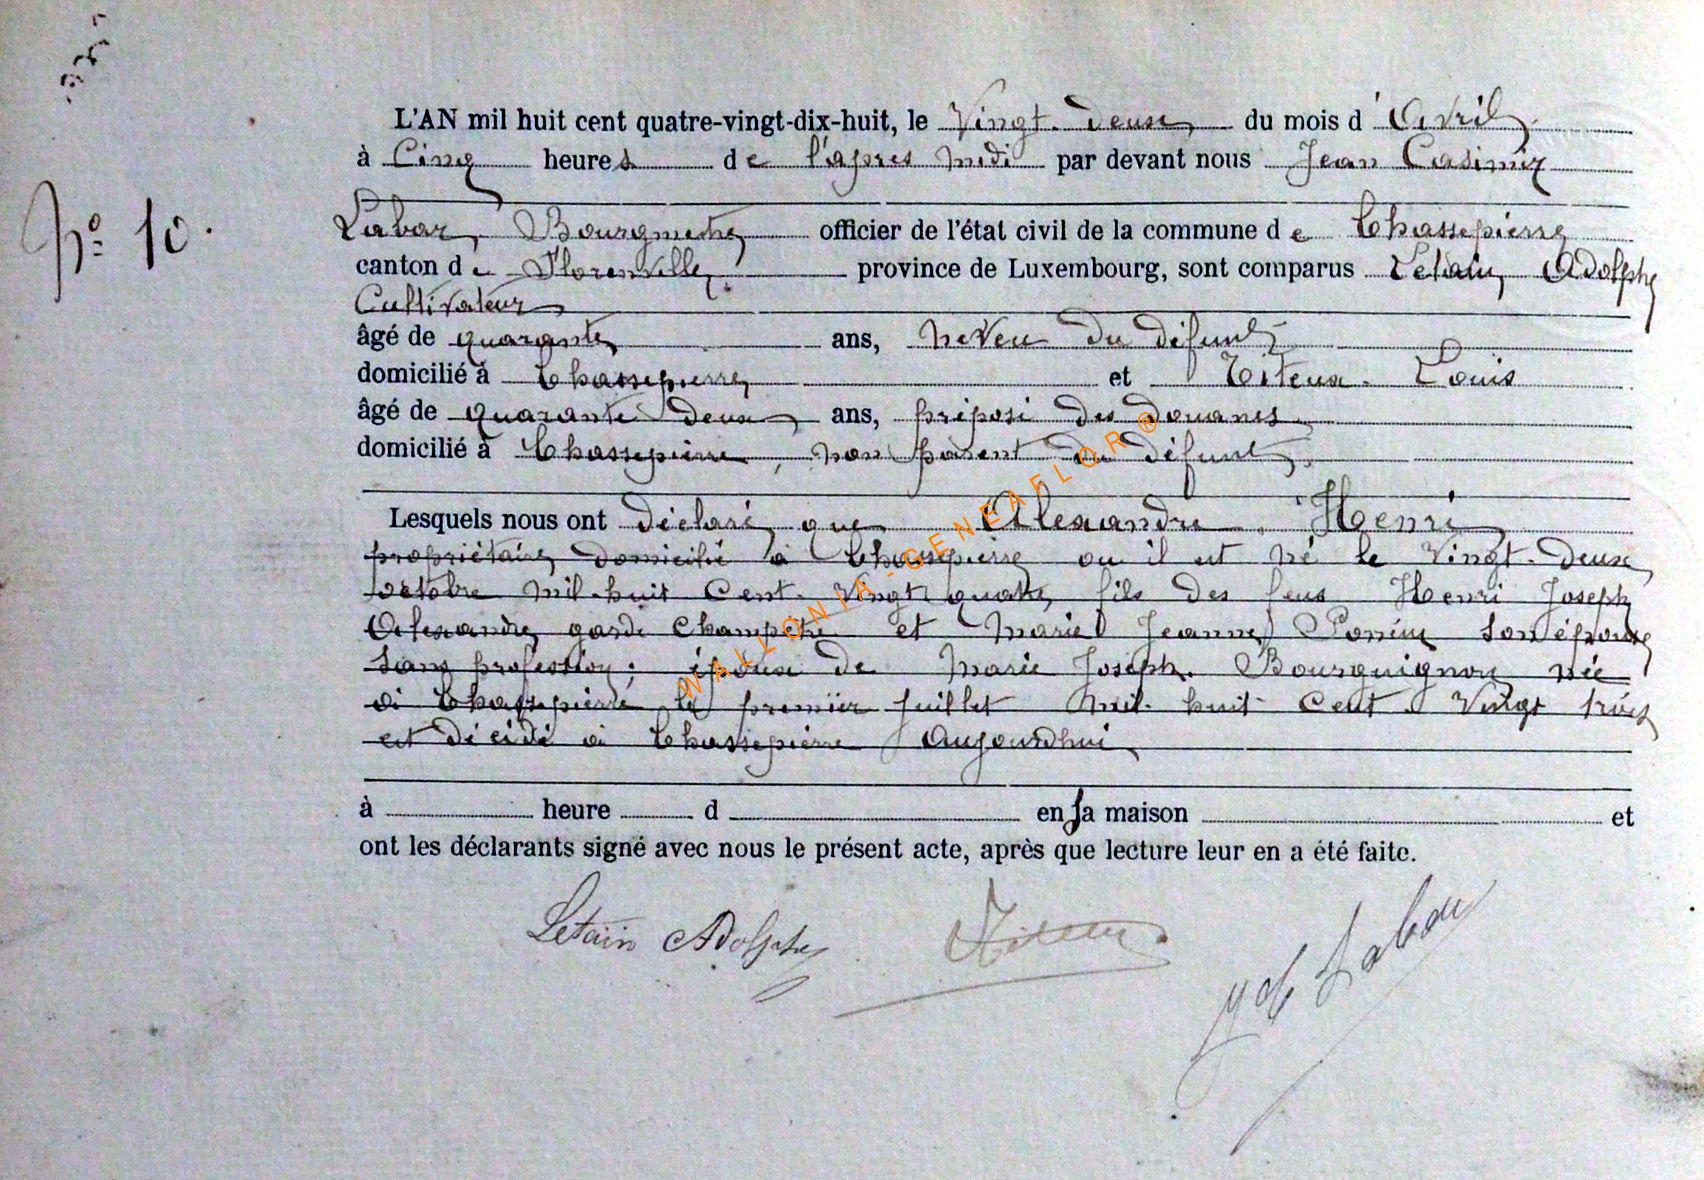 L'AN mil huit cent quatre-vingt-dix-huit, le Vingt-deux du mois d'Avril
à Cinq heures de l'après midi par devant nous Jean Casimir
Nº 10.
Labar, Bourgmestre officier de l'état civil de la commune de Chassepierre
canton de Florenville, province de Luxembourg, sont comparus Letain Adolphe
Cultivateur
âgé de quarante ans, neveu du défunt
domicilié à Chassepierre et Titeux Louis
âgé de quarante deux ans, préposé des douanes
domicilié à Chassepierre, non parent du défunt.
Lesquels nous ont déclaré que Alexandre Henri
propriétaire domicilié à Chassepierre où il est né le Vingt-deux
octobre mil-huit Cent-Vingt quatre fils des feus Henri Joseph
Alexandre garde Champêtre et Marie Jeanne son épouse
sans profession; époux de Marie Joseph Bourguignon née
à Chassepierre le premier juillet mil-huit Cent Vingt trois
est décédé à Chassepierre Aujourd'hui
à heure d en sa maison et
ont les déclarants signé avec nous le présent acte, après que lecture leur en a été faite.
Letain Adolphe Titeux Labar
WALLONIA-GENEAFLOR®